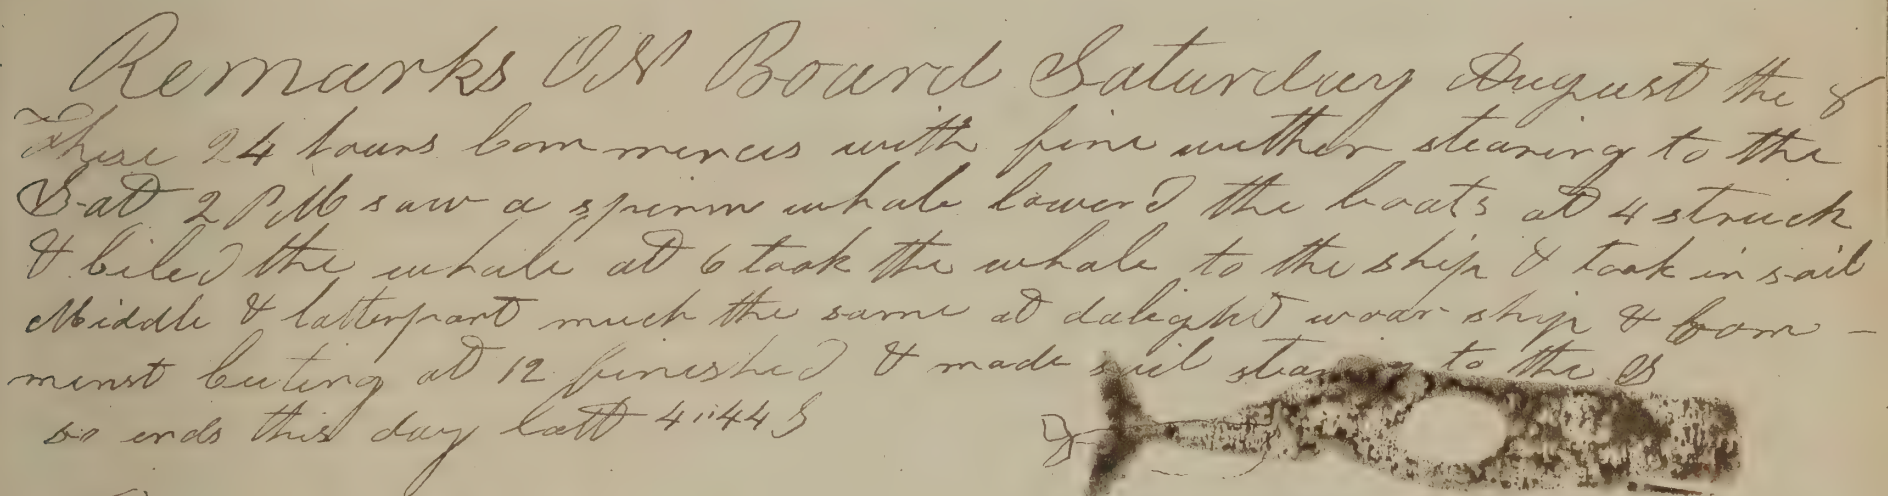 Remarks ON Board Saturday August the 8
These 24 hours Commences with fine wether stearing to the
S at 2 PM saw a sperm whale lowerd the boats at 4 struck
& Ciled the whale at 6 took the whale to the ship & took in sail
Middle & latterpart much the same at daligh't woar ship & Com-
minst Cuting at 12 finished & made sail stearing to the S
so ends this day latt 4"44 S